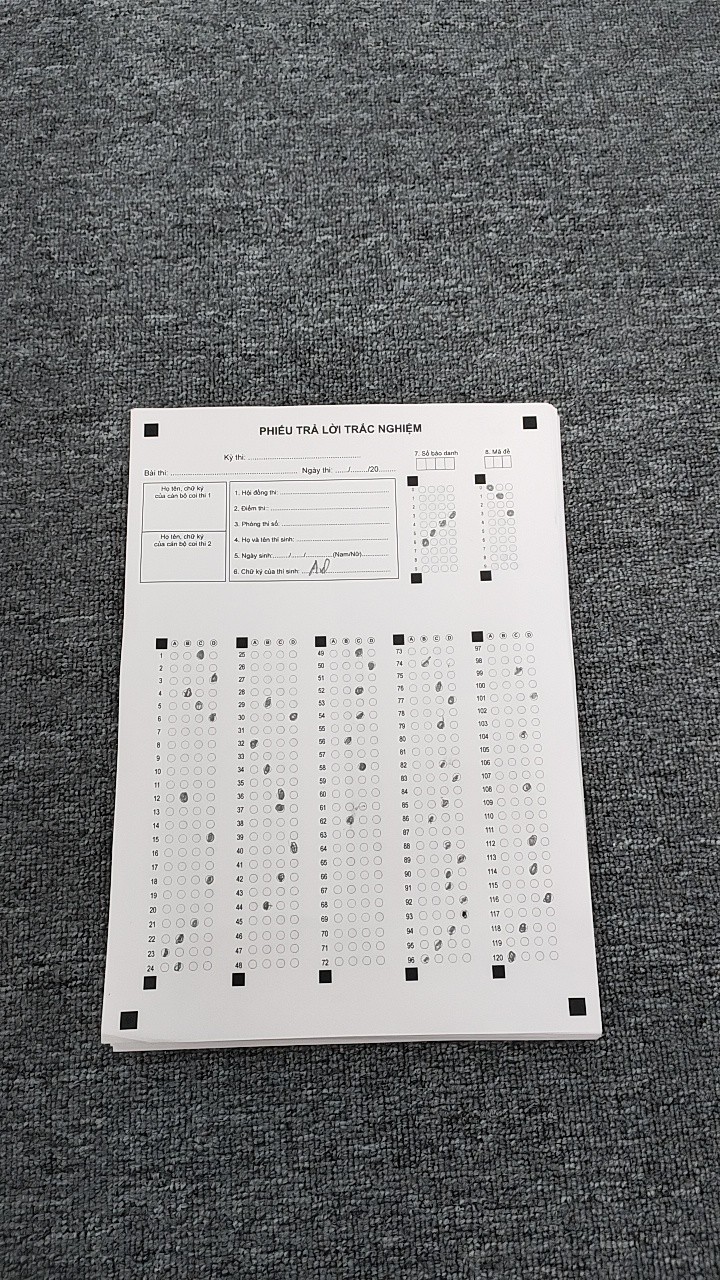 PHIẾU TRẢ LỜI TRẮC NGHIỆM
Kỳ thi: ................................................
Bài thi: ..................................................... Ngày thi: ....../......../20........
Họ tên, chữ ký
của cán bộ coi thi 1
Họ tên, chữ ký
của cán bộ coi thi 2
1. Hội đồng thi: ................................................
2. Điểm thi: ................................................
3. Phòng thi số: ................................................
4. Họ và tên thí sinh: ................................................
5. Ngày sinh:......./....../............(Nam/Nữ)............
6. Chữ ký của thí sinh: ................................................
7. Số báo danh
8. Mã đề
A B C D
1
2
3
4
5
6
7
8
9
10
11
12
13
14
15
16
17
18
19
20
21
22
23
24
A B C D
25
26
27
28
29
30
31
32
33
34
35
36
37
38
39
40
41
42
43
44
45
46
47
48
A B C D
49
50
51
52
53
54
55
56
57
58
59
60
61
62
63
64
65
66
67
68
69
70
71
72
A B C D
73
74
75
76
77
78
79
80
81
82
83
84
85
86
87
88
89
90
91
92
93
94
95
96
A B C D
97
98
99
100
101
102
103
104
105
106
107
108
109
110
111
112
113
114
115
116
117
118
119
120